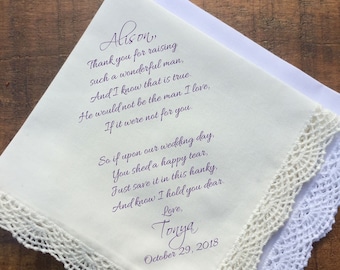 Alison,,
Thank you for raising
such a wonderful man,
And I know that is true.
He would not be the man I love,
If it were not for you.
So if upon our wedding day,
You shed a happy tear,
Just save it in this hanky,
And know I hold you dear.
Love,
Tonya
October 29, 2018